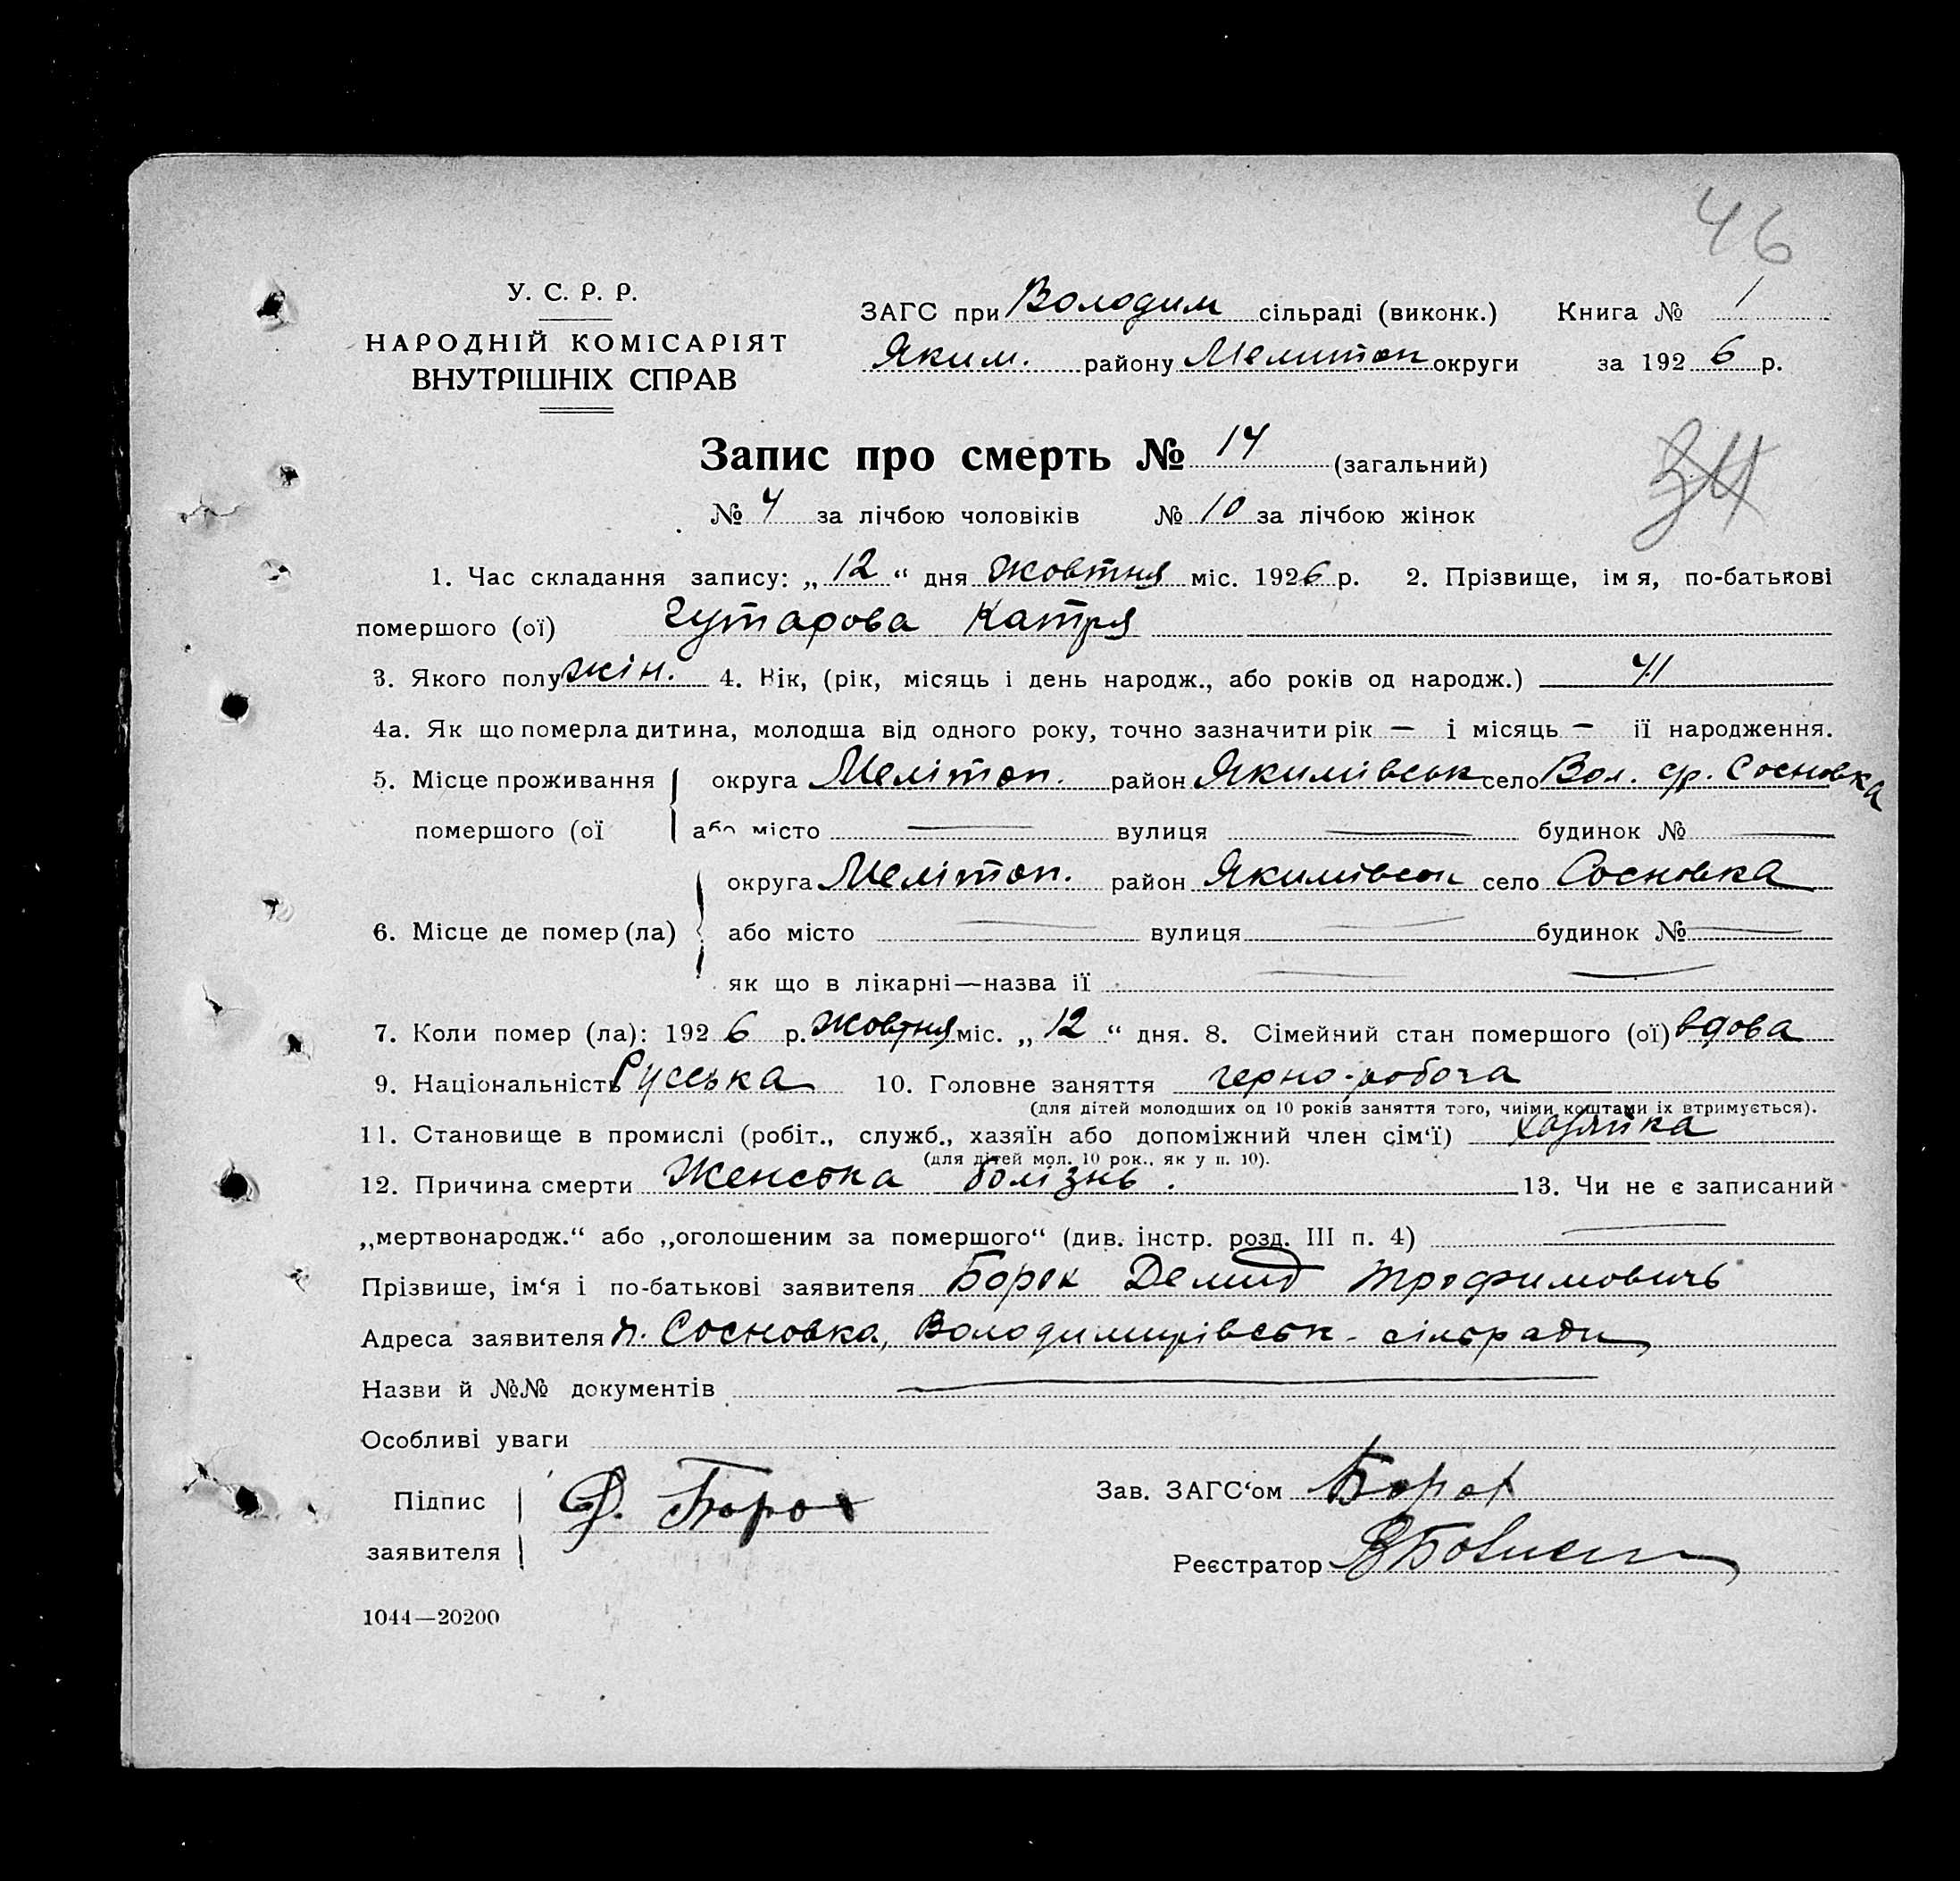 46
У. С. Р. Р.
НАРОДНІЙ КОМІСАРІЯТ
ВНУТРІШНІХ СПРАВ
ЗАГС при Володим сільраді (виконк.) Книга № 1
Яким. району Мелитоп округи за 1926 р.
Запис про смерть № 14 (загальний)
№ 4 за лічбою чоловіків № 10 за лічбою жінок
1. Час складання запису: „12“ дня жовтня міс. 1926 р. 2. Прізвище, імя, по-батькові
помершого (ої) Катря
3. Якого полу жін. 4. Вік, (рік, місяць і день народж., або років од народж.) 41
4а. Як що померла дитина, молодша від одного року, точно зазначити рік — і місяць — її народження.
5. Місце проживання округа Мелітоп. район Якимівськ село Вол. с/р. Сосновка
помершого (ої або місто — вулиця — будинок № —
округа Мелітоп. район Якимівськ село Сосновка
6. Місце де помер (ла) або місто — вулиця — будинок № —
як що в лікарні—назва її —
7. Коли помер (ла): 1926 р. жовтня міс. „12“ дня. 8. Сімейний стан помершого (ої) вдова
9. Національність Руська 10. Головне заняття черно-робоча
(для дітей молодших од 10 років заняття того, чиїми коштами їх втримується).
11. Становище в промислі (робіт., служб., хазяїн або допоміжний член сім‘ї) хазяйка
(для дітей мол. 10 рок., як у п. 10).
12. Причина смерти Женська болізнь. 13. Чи не є записаний
„мертвонародж.“ або „оголошеним за помершого“ (див. інстр. розд. III п. 4) —
Прізвише, ім‘я і по-батькові заявителя Борох Демид Трофимовичь
Адреса заявителя п. Сосновка, Володимирівськ. сільради
Назви й №№ документів —
Особливі уваги
Підпис Д. Борох Зав. ЗАГС‘ом Борох
заявителя Реєстратор
1044—20200